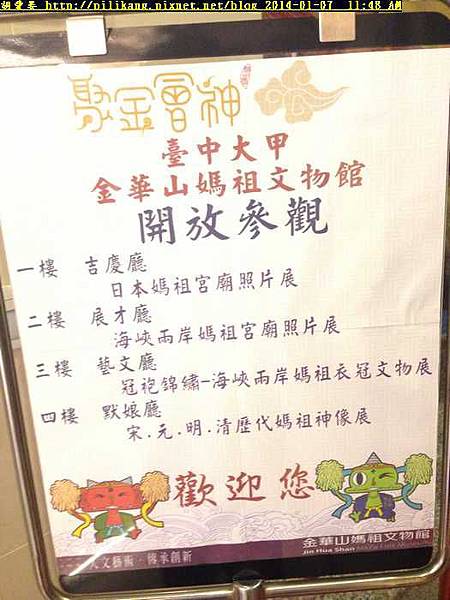 胡愛晏 http://pilikang.pixnet.net/blog 2014-01-07 11:48 AM
聚金會神
臺中大甲
金華山媽祖文物館
開放參觀
一樓 吉慶廳
日本媽祖宮廟照片展
二樓 展才廳
海峽兩岸媽祖宮廟照片展
三樓 藝文廳
冠袍錦繡-海峽兩岸媽祖衣冠文物展
四樓 默娘廳
宋.元.明.清歷代媽祖神像展
歡迎您
金華山媽祖文物館
Jin Hua Shan
人文藝術 傳承創新